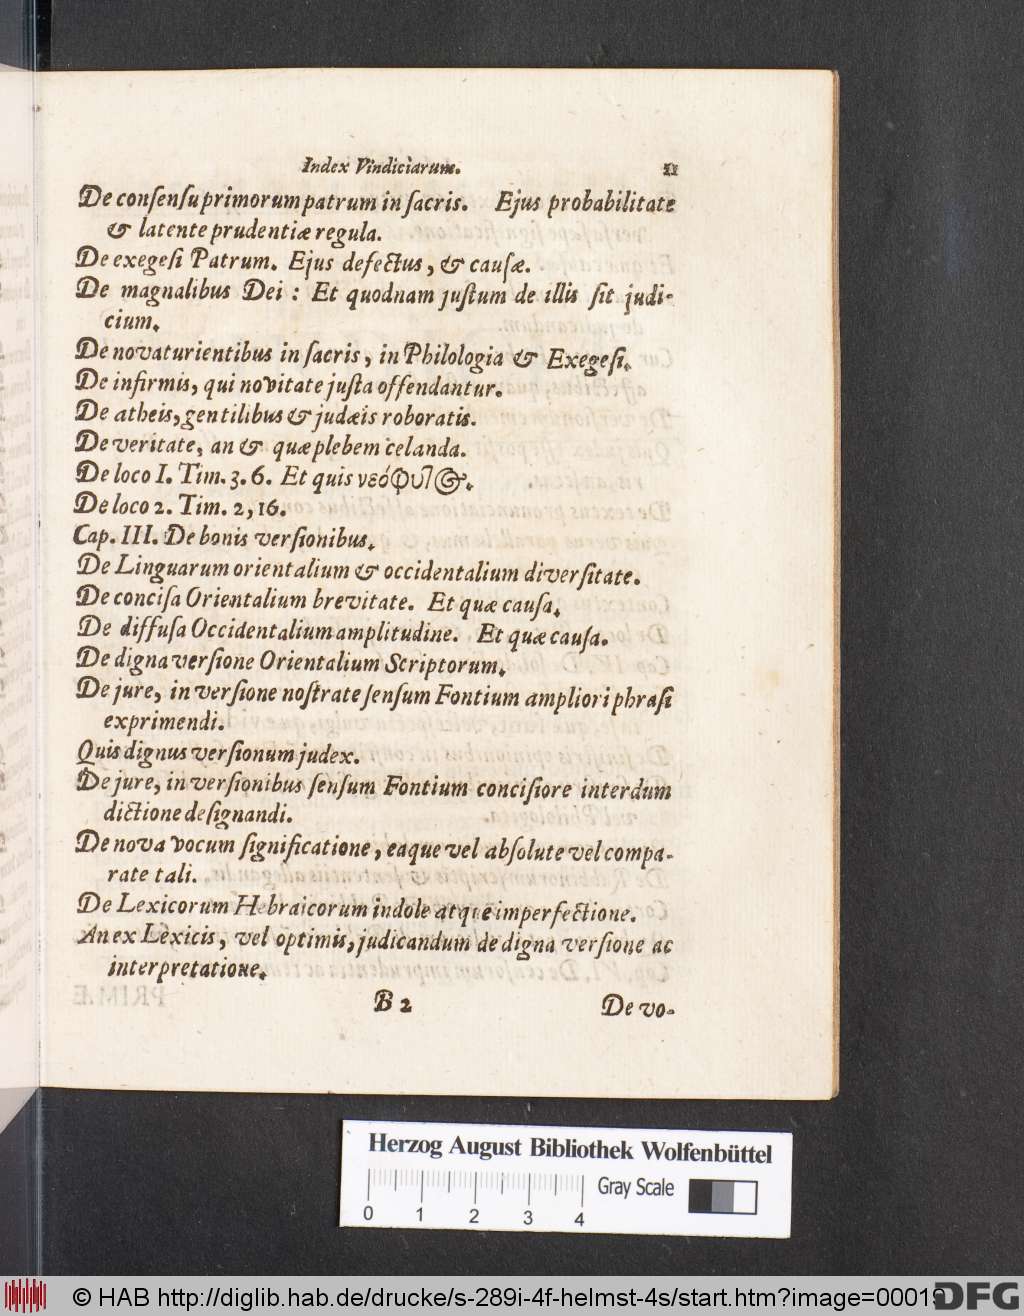 Index Vindiciarum. 11
De conſenſu primorum patrum in ſacris. Ejus probabilitate
& latente prudentiæ regula.
De exegeſi Patrum. Ejus defectus, & cauſæ.
De magnalibus Dei : Et quodnam juſtum de illis ſit judi-
cium.
De novaturientibus in ſacris, in Philologia & Exegeſi.
De infirmis, qui novitate juſta offendantur.
De atheis, gentilibus & judæis roboratis.
De veritate, an & quæ plebem celanda.
De loco I. Tim. 3. 6. Et quis νεόφυτος.
De loco 2. Tim. 2, 16.
Cap. III. De bonis verſionibus.
De Linguarum orientalium & occidentalium diverſitate.
De conciſa Orientalium brevitate. Et quæ cauſa.
De diffuſa Occidentalium amplitudine. Et quæ cauſa.
De digna verſione Orientalium Scriptorum.
De jure, in verſione noſtrate ſenſum Fontium ampliori phraſi
exprimendi.
Quis dignus verſionum judex.
De jure, in verſionibus ſenſum Fontium conciſiore interdum
dictione deſignandi.
De nova vocum ſignificatione, eaque vel abſolute vel compa-
rate tali.
De Lexicorum Hebraicorum indole atque imperfectione.
An ex Lexicis, vel optimis, judicandum de digna verſione ac
interpretatione.
B 2 De vo-
Herzog August Bibliothek Wolfenbüttel
Gray Scale
0 1 2 3 4
© HAB http://diglib.hab.de/drucke/s-289i-4f-helmst-4s/start.htm?image=00019
DFG